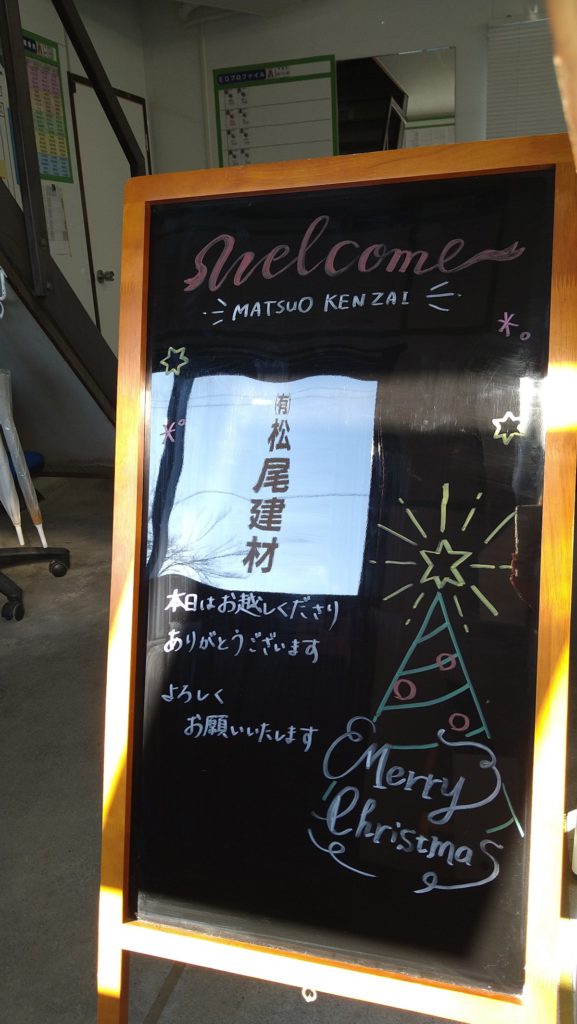 EQプロファイル
welcome
MATSUO KENZAI
㈲松尾建材
本日はお越しくださり
ありがとうございます
よろしく
お願いいたします
Merry
Christmas